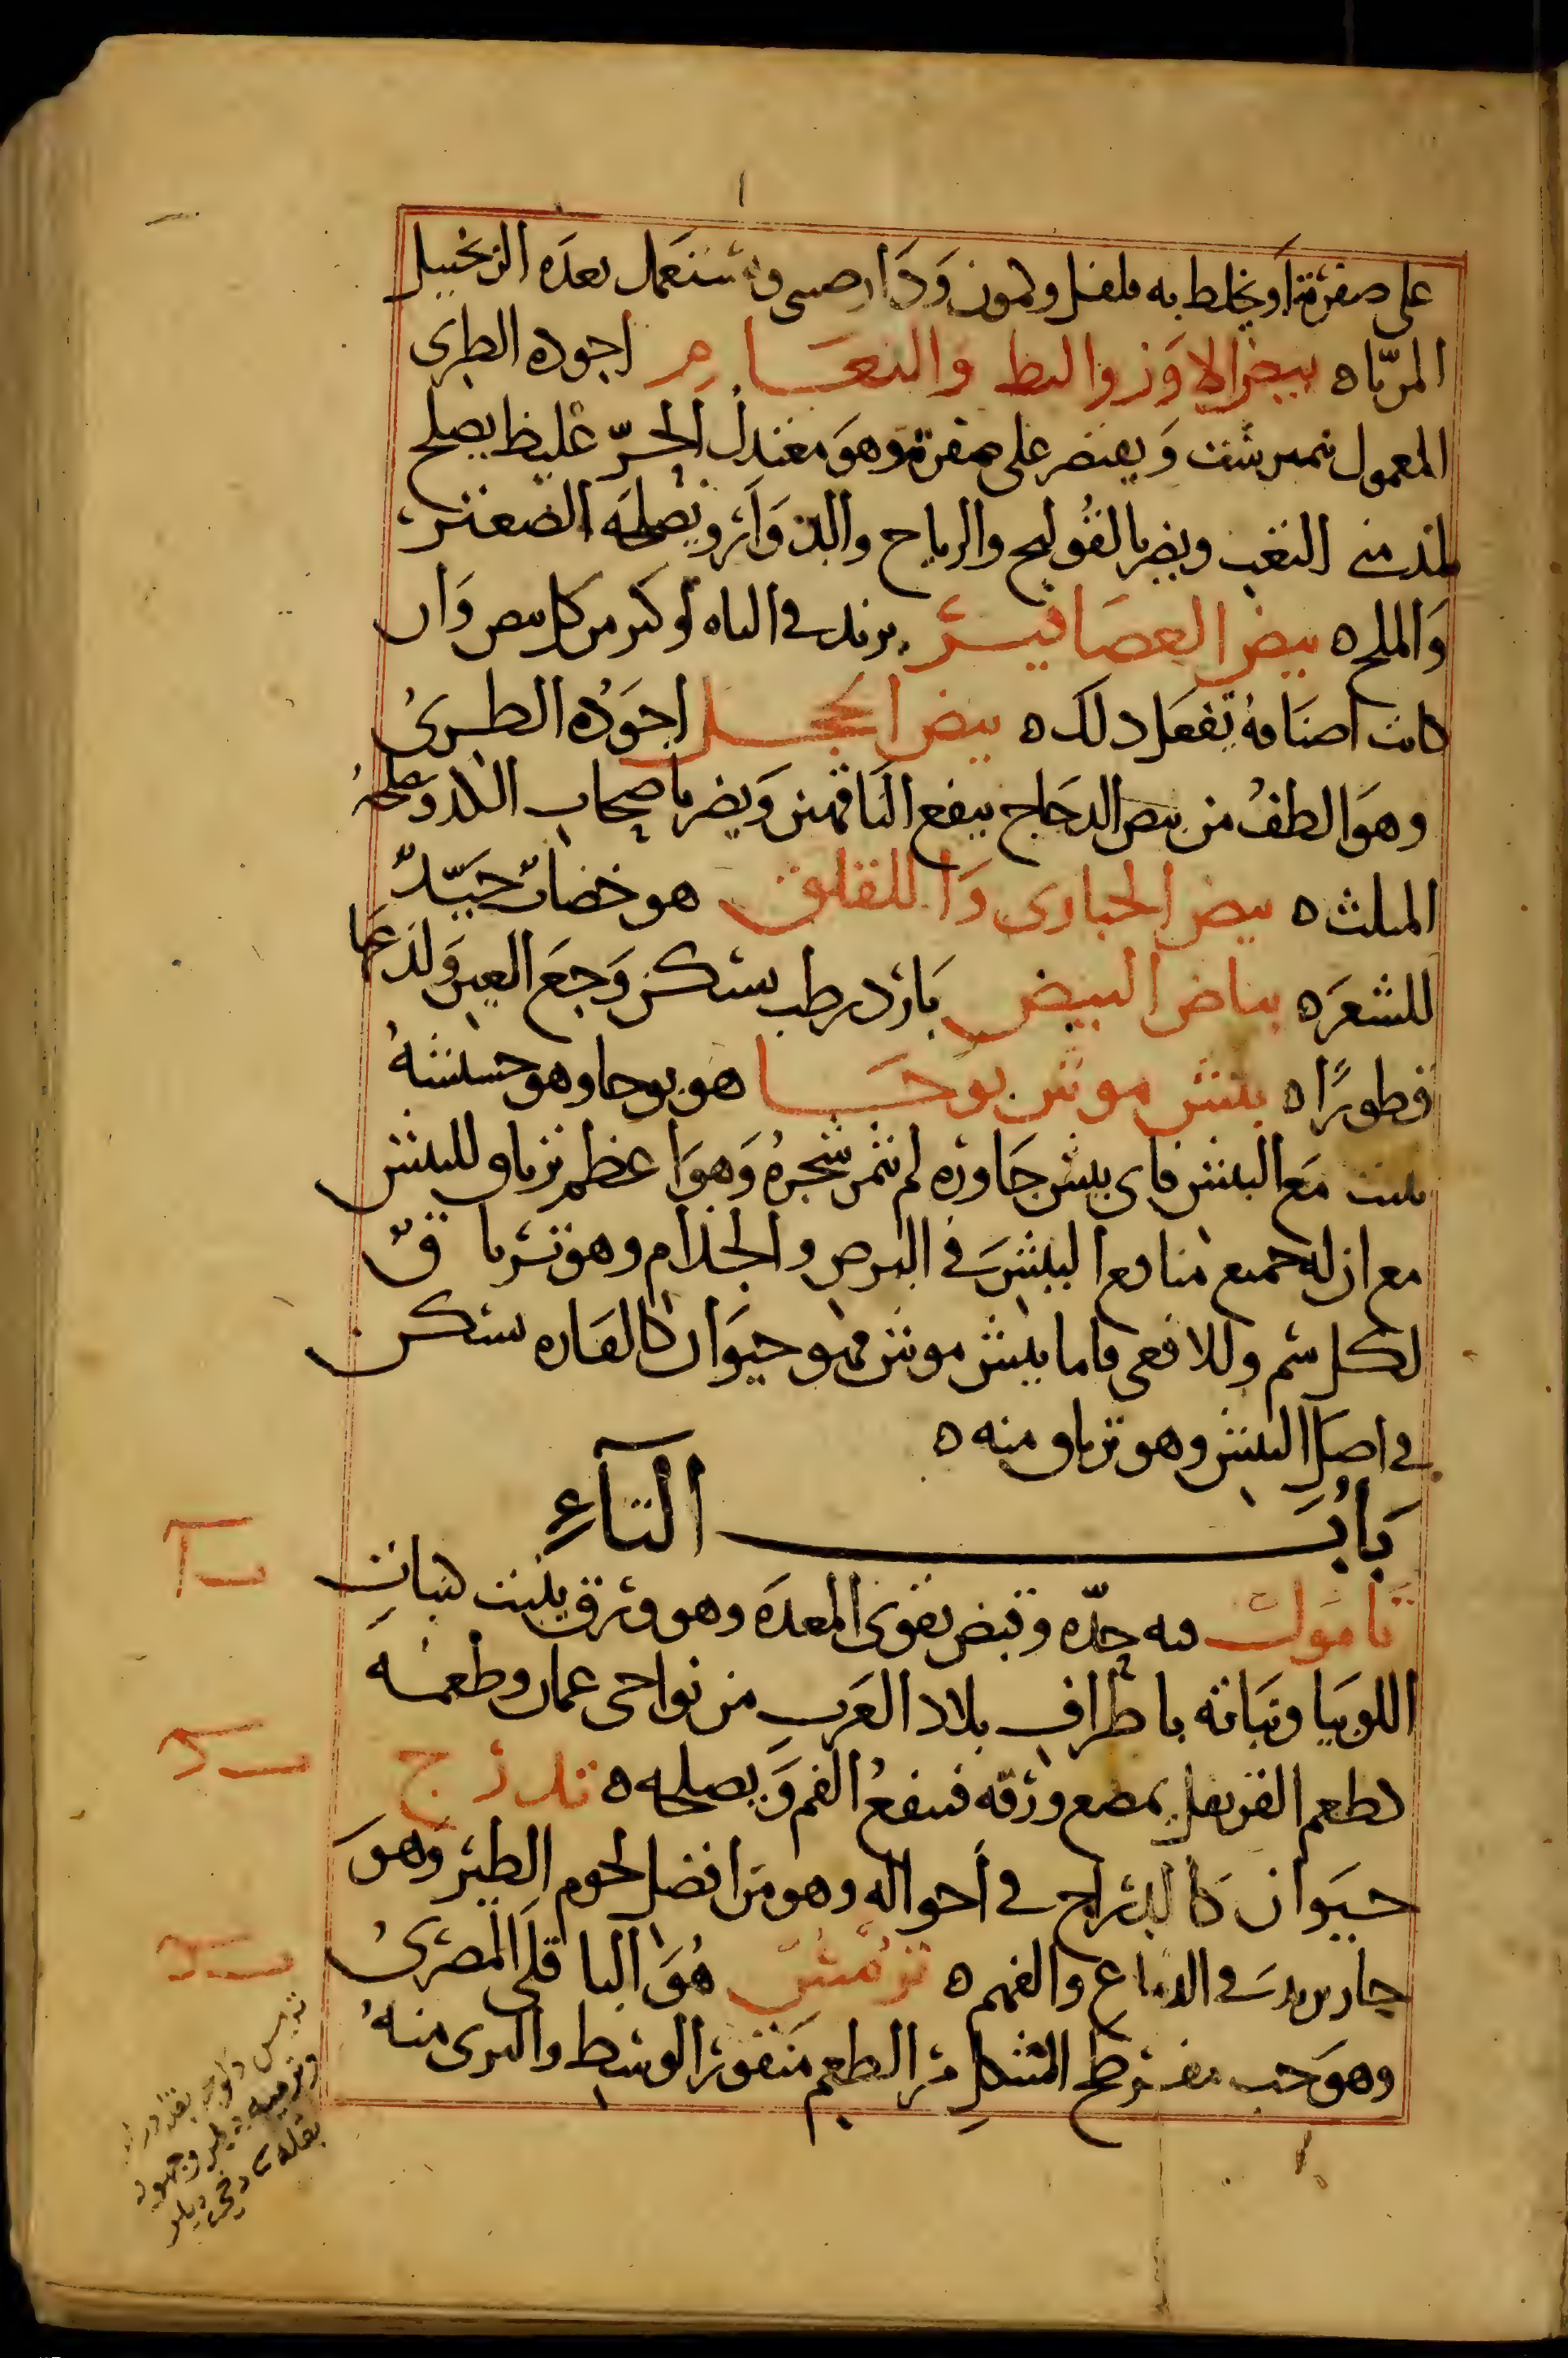 على صفرته او يخلط به فلفل وكمون وَدَارصينى ويستعمل بعده الزنجبيل
المربّا ه بيض الاوَز والبط والنعَام اجوده الطرى
المعمول نيمبرشت وَيقتصر على صفرته وهوَ معتدل الحرّ غليظ يصلح
لمدمنى التعب ويضر بالقُولنج والرياح والدوَار ويصلحه الصعتر
وَالملح ه بيض العصَافير يزيد فى الباه اوكثر من كل بيض وَان
كانت اصنَافهُ تفعَل ذلك ه بيض الحجل اجوَدُه الطرىُ
وهوَ الطفُ من بيض الدجَاج ينفع النَاقهين وَيضر باصحاب الكد وَيصلحهُ
المثلث ه بيض الحبارى وَاللقلق هو خضابٌ جيّدٌ
للشعرَ ه بياض البيض بَارد رطب يسكن وَجعَ العين وَلذعهَا
قطورًا ه بيش موش بوحَا هو بوحا وهو حشيشهُ
تنبت مَع البيش فاى بيش جَاوره لم يثمر شجرهُ وَهوَ اعظم ترياق للبيش
مع ان له جميع منافع البيش فى البرص والجذام وهو ترياقٌ
لكل سم وللافعى فاما بيش موش فهو حيوَان كالفاره يسكن
فى اصل البيش وهو ترياق منه ه
بَابُ التآءِ
تامول فيه حِدّه وقبض يقوى المعدَه وهو ورق ينبت كنبات
اللوبيا ونباته باطراف بلاد العرَب من نواحى عمان وطعمه
كطعم القرنفل يمضع ورقه فينفعُ الفم وَيصلحه ه تدرج
حيَوان كالدراج فى احواله وهو من افضل لحوم الطير وَهوَ
حار يزيدَ فى الدماغ والفهم ه ترمس هُوَ الباقلَى المصرىُ
وهوَ حب مفرطح الشكلِ مر الطعم مَنقور الوسط والبرى منهُ